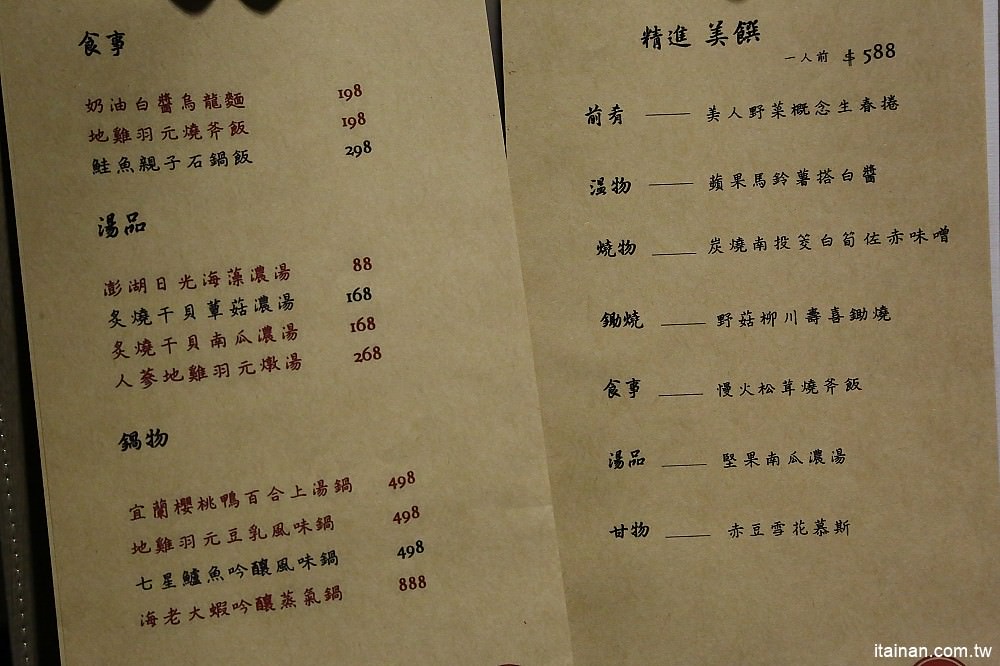 食事
奶油白醬烏龍麵 198
地雞羽元燒斧飯 198
鮭魚親子石鍋飯 298
湯品
澎湖日光海藻濃湯 88
炙燒干貝蕈菇濃湯 168
炙燒干貝南瓜濃湯 168
人蔘地雞羽元燉湯 268
鍋物
宜蘭櫻桃鴨百合上湯鍋 498
地雞羽元豆乳風味鍋 498
七星鱸魚吟釀風味鍋 498
海老大蝦吟釀蒸氣鍋 888
精進 美饌
一人前 $588
前肴 —— 美人野菜概念生春捲
温物 —— 蘋果馬鈴薯搭白醬
燒物 —— 炭燒南投筊白筍佐赤味噌
鋤燒 —— 野菇柳川壽喜鋤燒
食事 —— 慢火松茸燒斧飯
湯品 —— 堅果南瓜濃湯
甘物 —— 赤豆雪花慕斯
itainan.com.tw